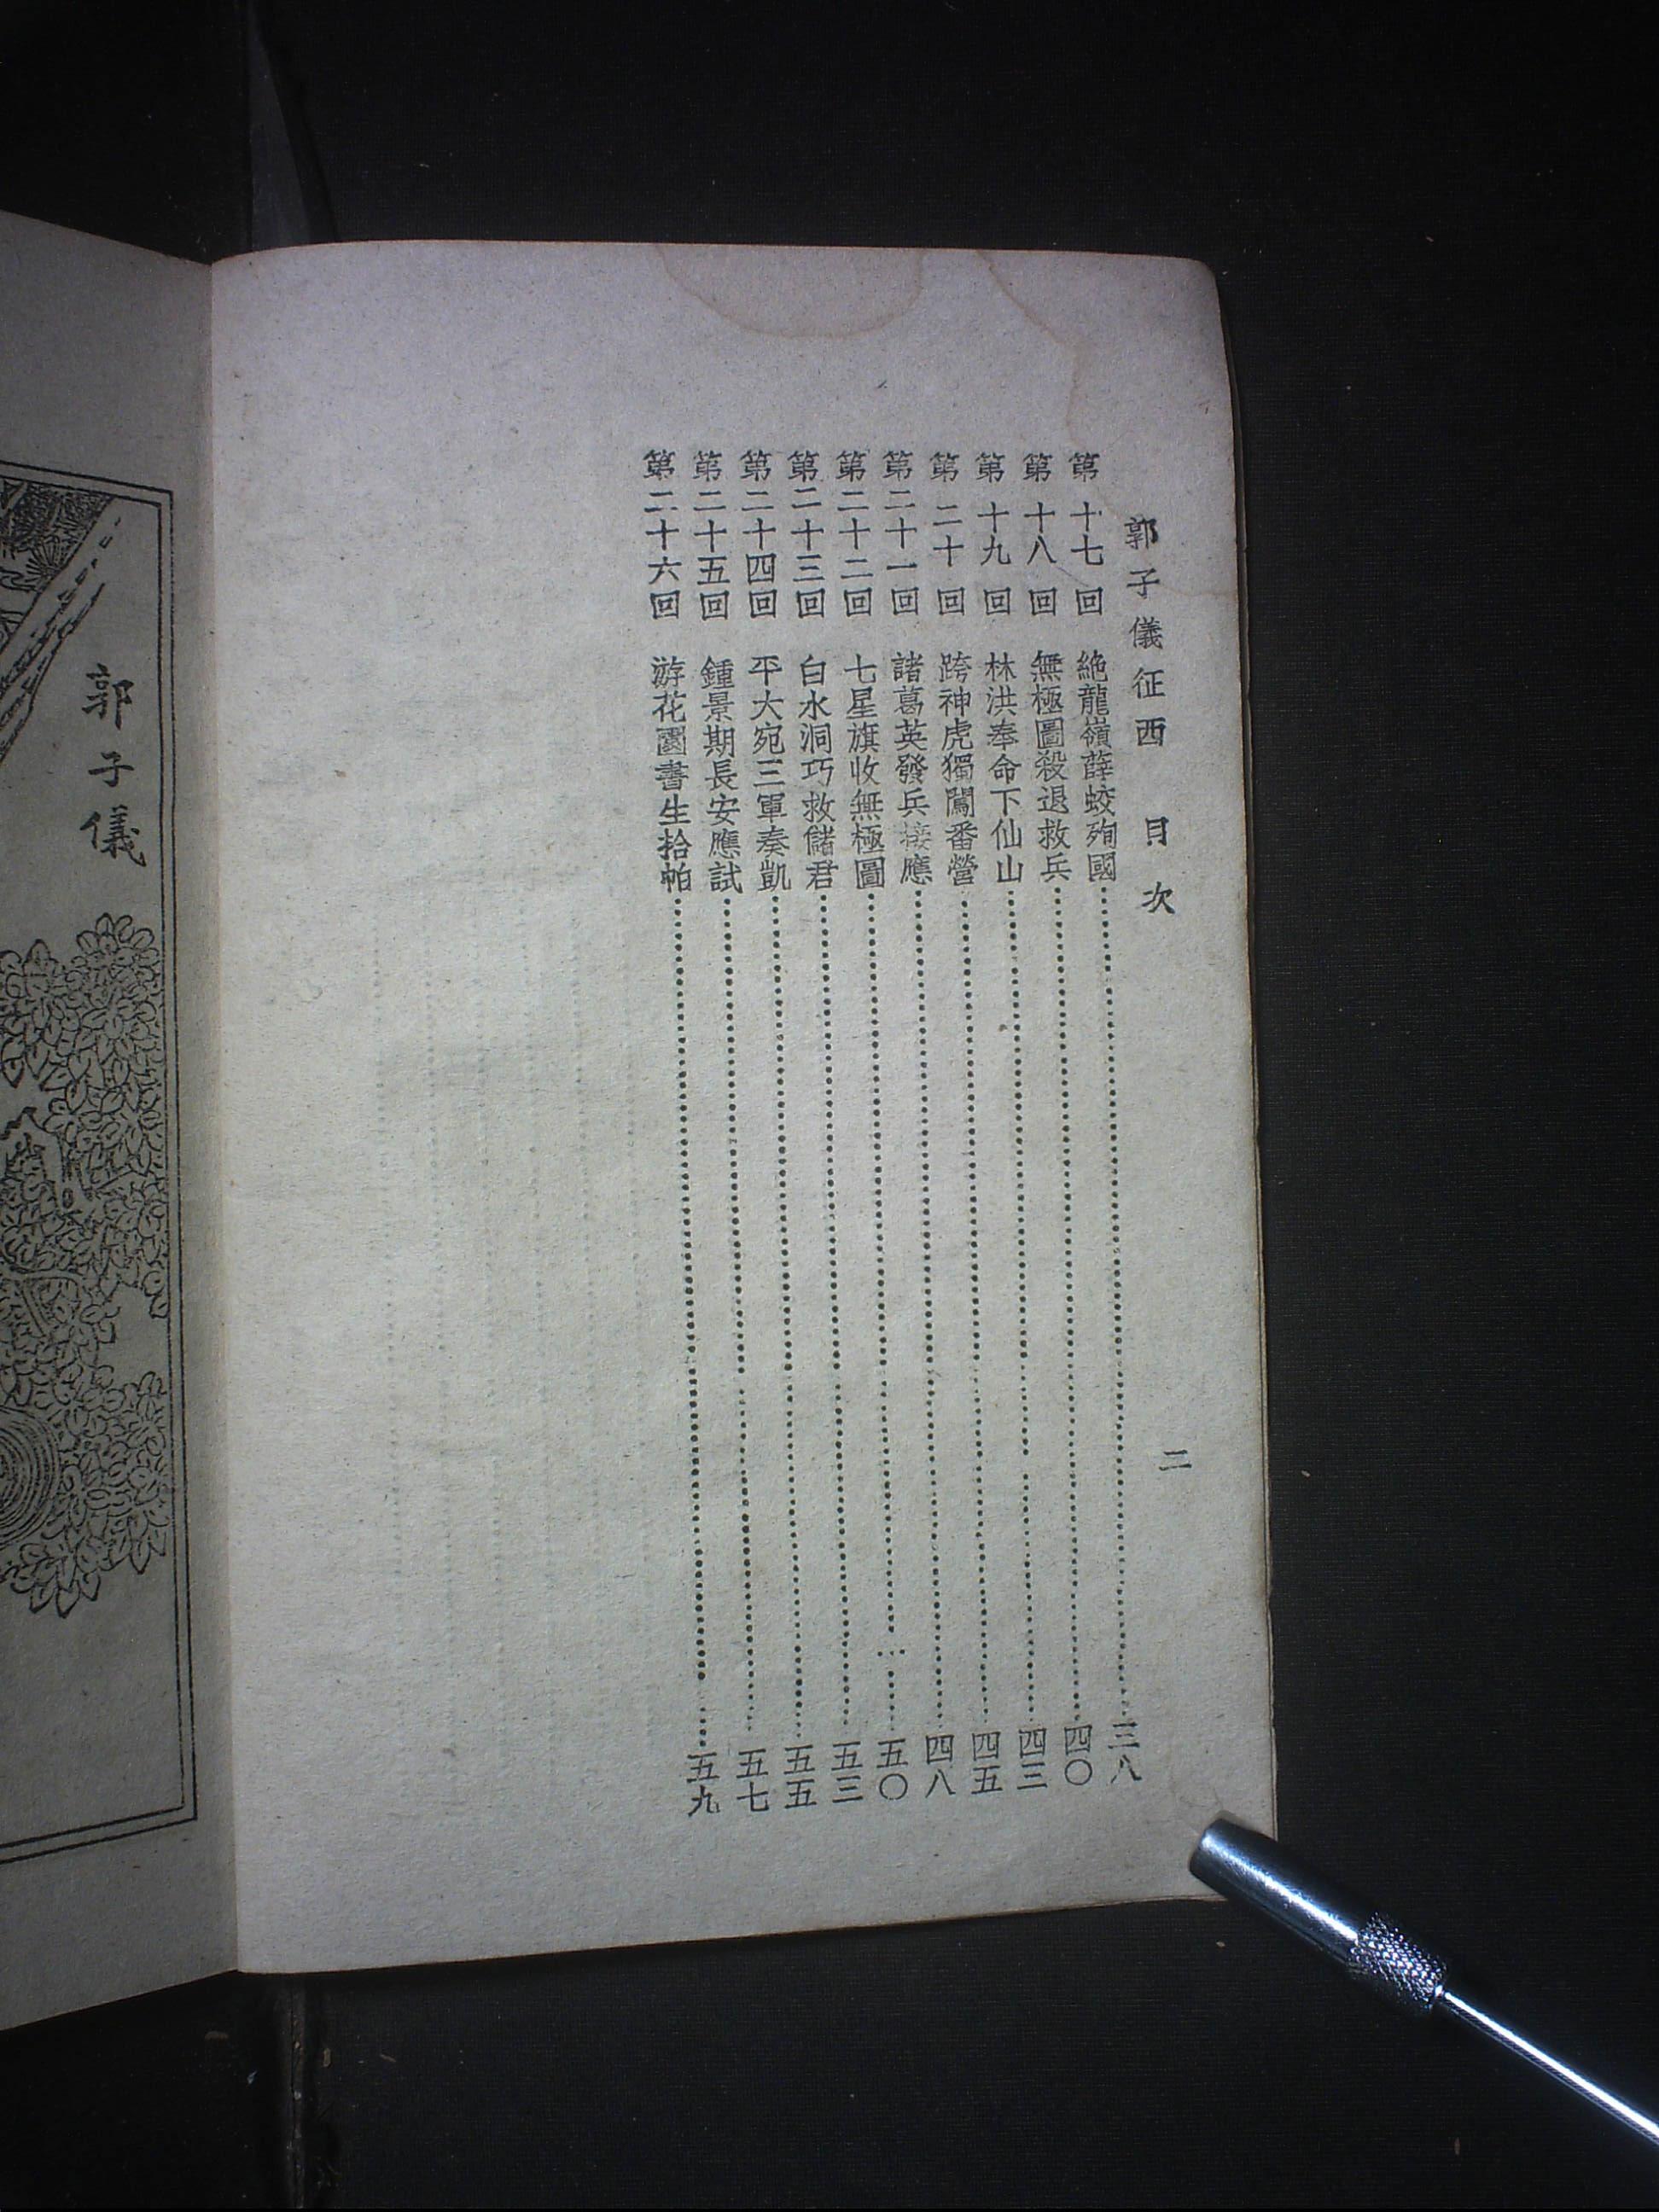 郭子儀征西 目次 二
第十七回 絶龍嶺薛蛟殉國……三八
第十八回 無極圖殺退救兵……四〇
第十九回 林洪奉命下仙山……四三
第二十回 跨神虎獨闖番營……四五
第二十一回 諸葛英發兵接應……四八
第二十二回 七星旗收無極圖……五〇
第二十三回 白水洞巧救儲君……五三
第二十四回 平大宛三軍奏凱……五五
第二十五回 鍾景期長安應試……五七
第二十六回 游花園書生拾帕……五九
郭子儀